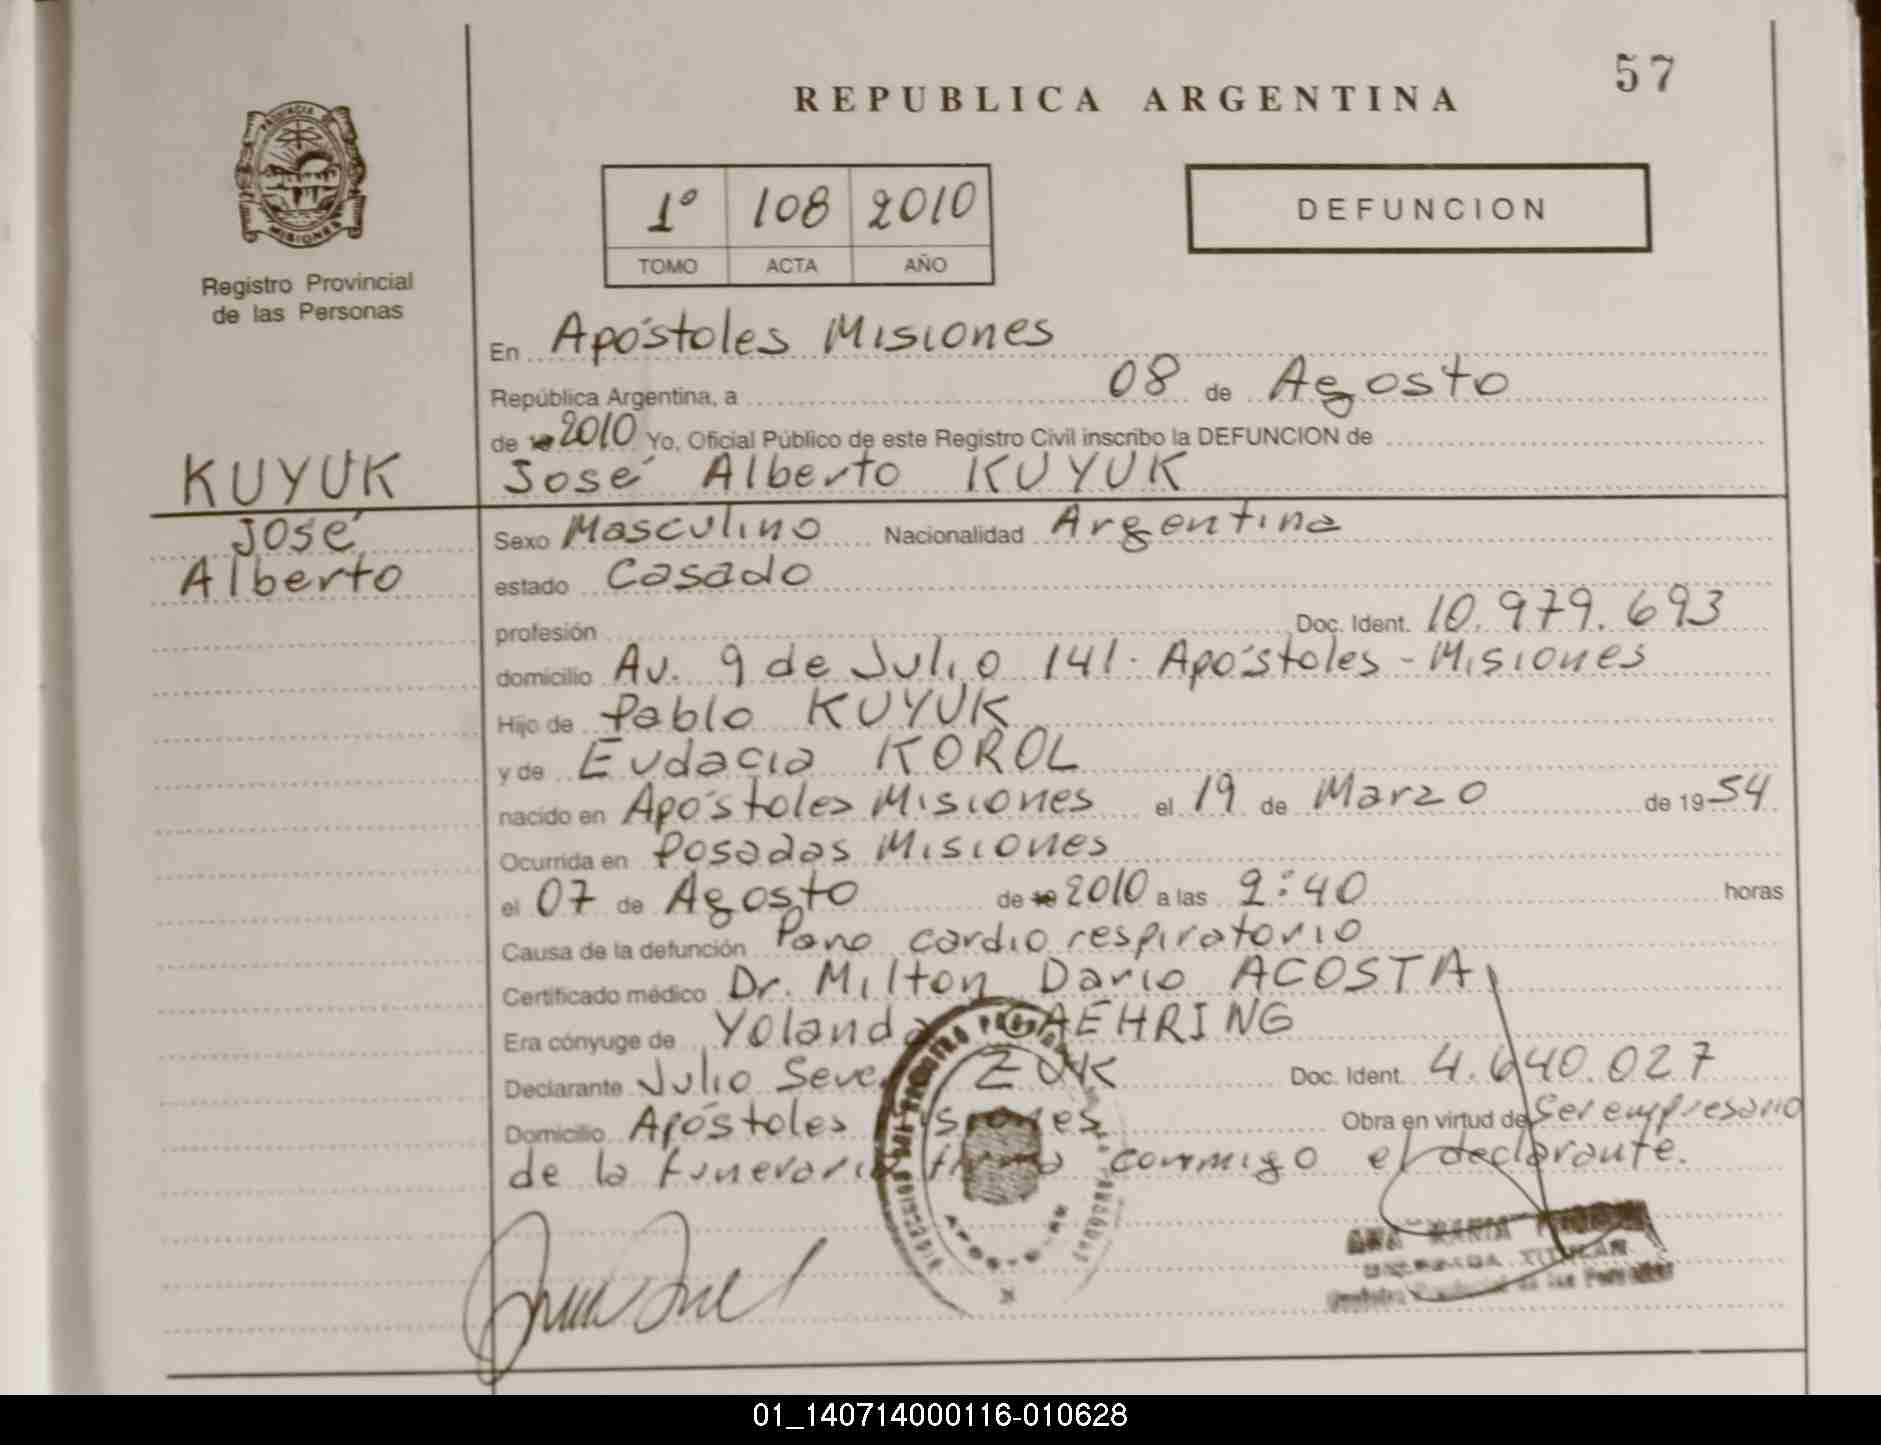 57
REPUBLICA ARGENTINA
PROVINCIA DE MISIONES
Registro Provincial
de las Personas
1º 108 2010
TOMO ACTA AÑO
DEFUNCION
En Apóstoles Misiones
República Argentina, a 08 de Agosto
de 2010 Yo, Oficial Público de este Registro Civil inscribo la DEFUNCION de
KUYUK José Alberto KUYUK
José
Alberto
Sexo Masculino Nacionalidad Argentina
estado Casado
profesión Doc. Ident. 10.979.693
domicilio Av. 9 de Julio 141 - Apóstoles - Misiones
Hijo de Pablo KUYUK
y de Eudacia KOROL
nacido en Apóstoles Misiones el 19 de Marzo de 1954
Ocurrida en Posadas Misiones
el 07 de Agosto de 2010 a las 2:40 horas
Causa de la defunción Paro cardio respiratorio
Certificado médico Dr. Milton Dario ACOSTA
Era cónyuge de Yolanda GAEHRING
Declarante Julio ZUK Doc. Ident. 4.640.027
Domicilio Apóstoles Misiones Obra en virtud de Ser empresario
de la funeraria firma conmigo el declarante.
ANA MARIA
TITULAR
de las Personas
01_140714000116-010628